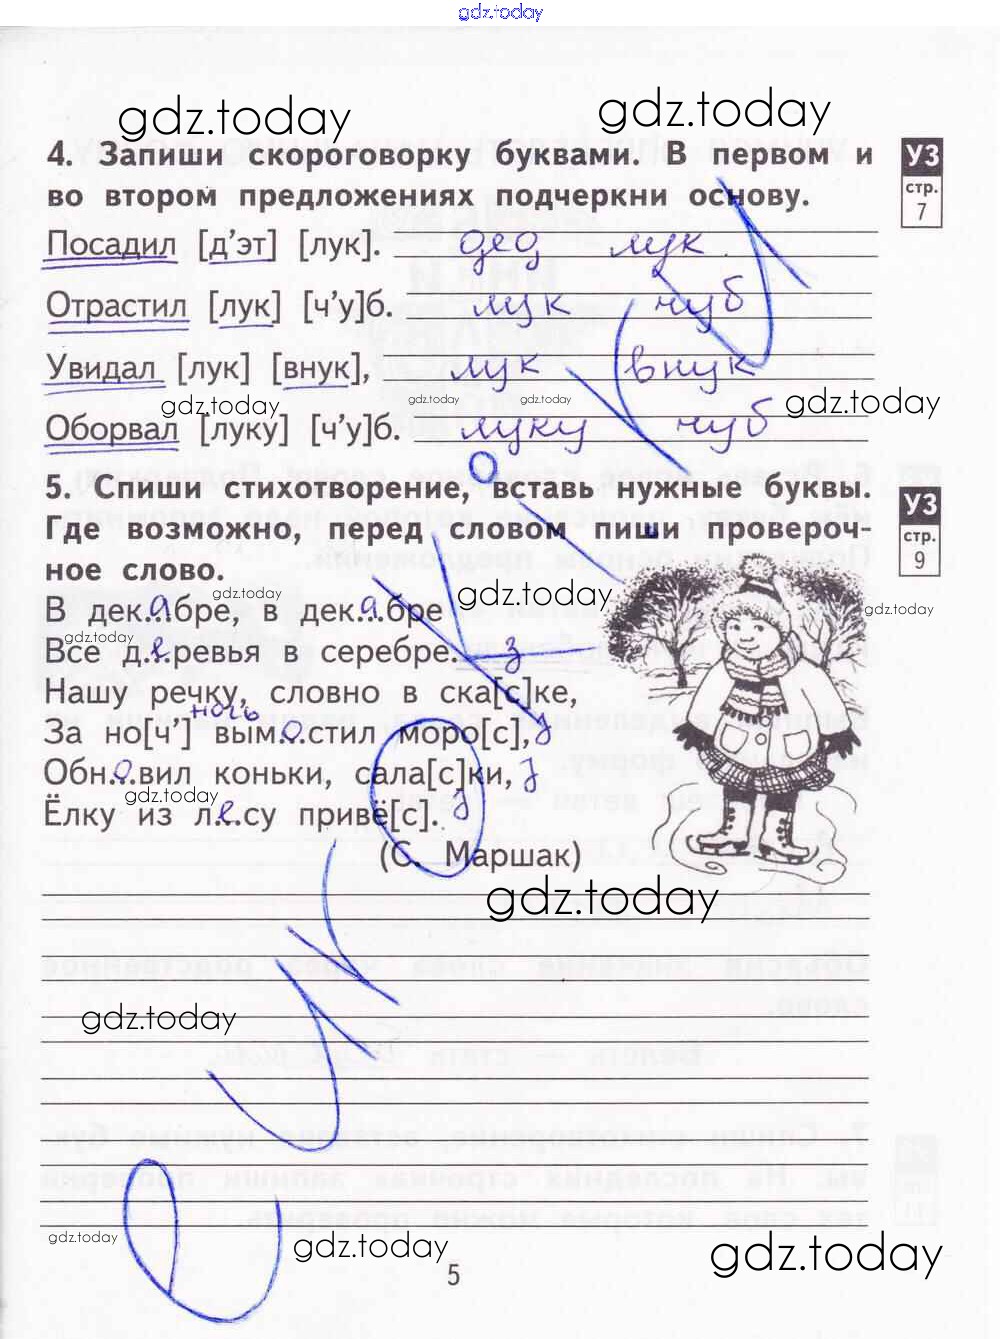 gdz.today
gdz.today gdz.today
4. Запиши скороговорку буквами. В первом и
во втором предложениях подчеркни основу.
УЗ
стр.
7
Посадил [д’эт] [лук]. дед лук.
Отрастил [лук] [ч’у]б. лук чуб
Увидал [лук] [внук], лук внук
gdz.today gdz.today gdz.today gdz.today
Оборвал [луку] [ч’у]б. луку чуб
5. Спиши стихотворение, вставь нужные буквы.
Где возможно, перед словом пиши провероч-
ное слово.
УЗ
стр.
9
gdz.today gdz.today gdz.today
В дек.а.бре, в дек.а.бре
gdz.today
Все д.е.ревья в серебре. з
Нашу речку, словно в ска[с]ке,
ночь
За но[ч’] вым.о.стил моро[с], з
Обн.о.вил коньки, сала[с]ки, з
gdz.today
Ёлку из л.е.су привё[с]. з
(С. Маршак)
gdz.today
gdz.today
gdz.today gdz.today gdz.today
5